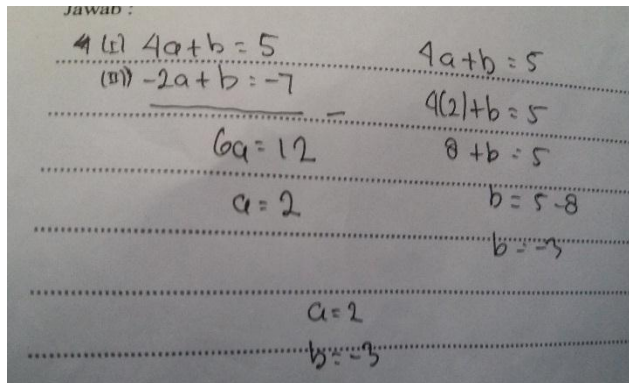 Jawab :
4 (I) 4a+b=5
(II) -2a+b=-7
-
6a=12
a=2
4a+b=5
4(2)+b=5
8+b=5
b=5-8
b=-3
a=2
b=-3